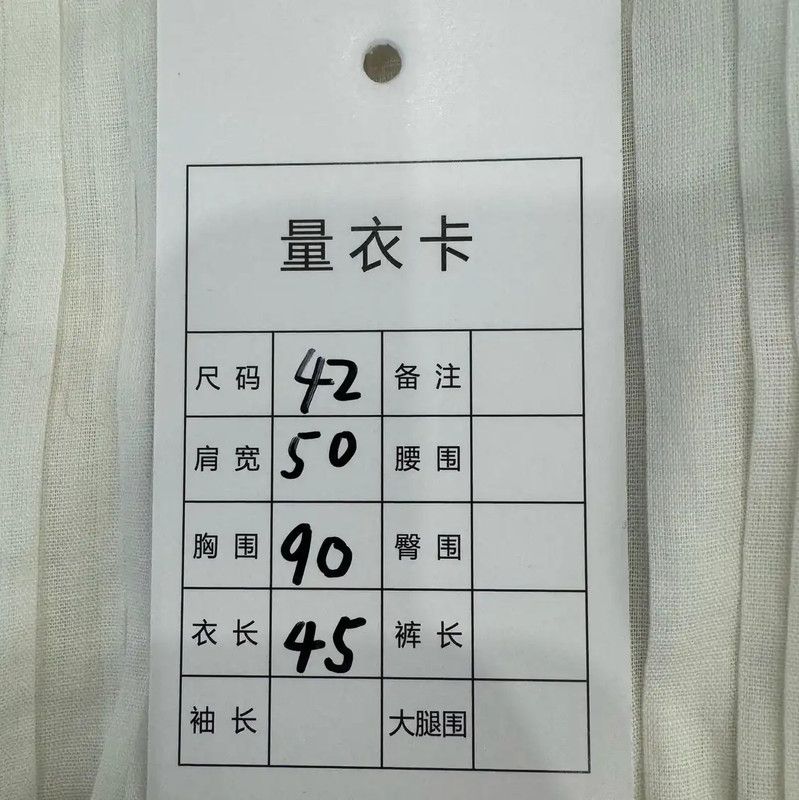 量衣卡
尺码 42 备注
肩宽 50 腰围
胸围 90 臀围
衣长 45 裤长
袖长 大腿围